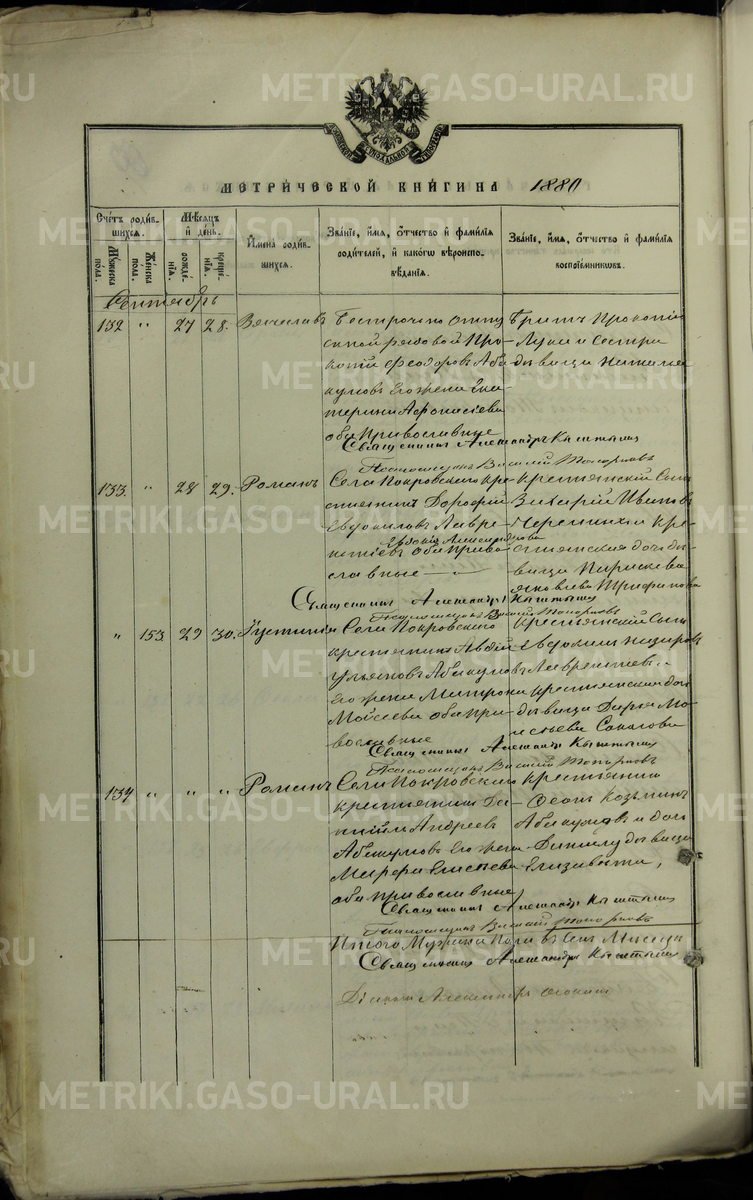 METRIKI.GASO-URAL.RU
МЕТРИЧЕСКОЙ КНИГИ НА 1880
Счетъ родив-
шихся.
Мужеска пола.
Женска пола.
Мѣсяцъ
и день.
рожде-
нія.
креще-
нія.
Имена родив-
шихся.
Званіе, имя, отчество и фамилія
родителей, и какого вѣроиспо-
вѣданія.
Званіе, имя, отчество и фамилія
воспріемниковъ.
Сентябрь
132 " 27 28. Вячеславъ
Безсрочно отпу
скной рядовой Про
копій Феодоровъ Аба
кумовъ Его жена Ека-
терина Афонасіева
оба Православные
Братъ Прокопія
Лука и сестра
девица Наталья
Священникъ Александръ Кыштымъ
Василій Топорковъ
133 " 28 29. Романъ
Села Покровскаго кре-
стьянинъ Дорофей
Евдокимовъ Лавре-
Евдокія Александрова
нтьевъ оба Право
славные
крестьянскій сынъ
Захарій Ивановъ
Черемныхъ кре-
стьянская дочь де-
вица Параскева
Яковлева Трифанова
Священникъ Александръ Кыштымъ
Василій Топорковъ
" 153 29 30. Іустинія
Села Покровскаго
крестьянинъ Авдій
Ульяновъ Абакумовъ
Его жена Матрона
Моисеева оба Пра-
вославные
крестьянскій сынъ
Евдокимъ Назаровъ
Лаврентьевъ
крестьянская доч
девица Дарья Мо-
исеева Соколова
Священникъ Александръ Кыштымъ
Василій Топорковъ
134 " " " Романъ
Села Покровскаго
крестьянинъ Да-
ніилъ Андреевъ
Абакумовъ Его жена
Марфа Елисеева
оба православные
крестьянинъ
Осопъ Козьминъ
Абакумовъ и доч
Данилу девица
Елизавета,
Священникъ Александръ Кыштымъ
Василій Топорковъ
Итого Мужеска Пола въ Семъ Месяцѣ
Священникъ Александръ Кыштымъ
Діаконъ Александръ